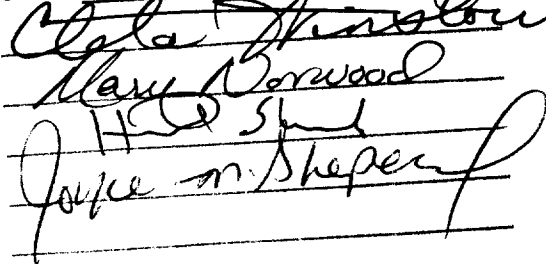 Cleta Winslow
Mary Norwood
H
Joyce M. Sheperd